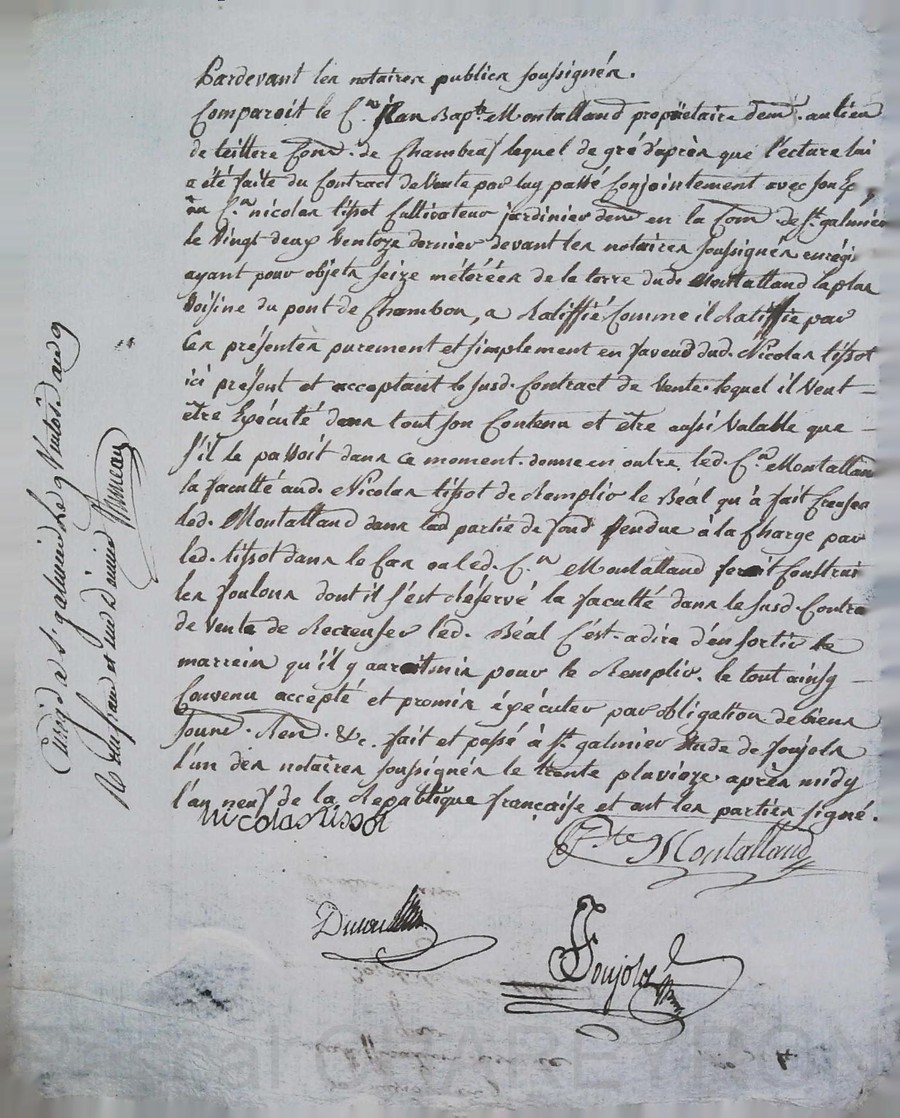 Pardevant les notaires publics soussignés.
Comparoit le C.en Jean Bapt.te Montalland propriétaire dem.t au lieu
de teillere Com.e de Chambeuf lequel de gré d'après que l'ecture lui
a été faite du Contract de Vente par luy passé Conjointement avec
au C.en nicolas tissot Cultivateur jardinier dem.t en la Com.e de S.t galmier
le Vingt deux Ventoze dernier devant les notaires soussignés enregi
ayant pour objets seize métérées de la terre dud. Montalland la plus
Voisine du pont de Chambon, a Ratiffié Comme il Ratiffie par
Ces présentes purement et simplement en faveur dud. Nicolas tissot
ici présent et acceptant le susd. Contract de Vente lequel il Veut
être Exécuté dans tout son Contenu et être aussi Valable que
S'il le passoit dans ce moment. donne en outre led. C.en Montalland
la faculté aud. Nicolas tissot de Remplir le Béal qu'à fait Creuser
led. Montalland dans lad partie de fond Vendue à la Charge par
led. tissot dans le Cas ou led. C.en Montalland feroit Construi
les foulons dont il s'est réservé la faculté dans le susd. Contra
de Vente de Recreuser led. Béal C'est-adire d'en sortir le
marrein qu'il y auroit mis pour le Remplir. le tout ainsy
Convenu accepté et promis éxécuter par obligation de biens
soum. Ren. &c. fait et passé à S.t galmier Etude de Soujols
l'un des notaires soussignés le trente pluvioze après midy
l'an neuf de la Republique française et ont les parties signé.
Nicolas tissot
B.te Montalland
Soujols
Enregis a S.t galmier le 9 Ventose an 9
R un franc et un Decime